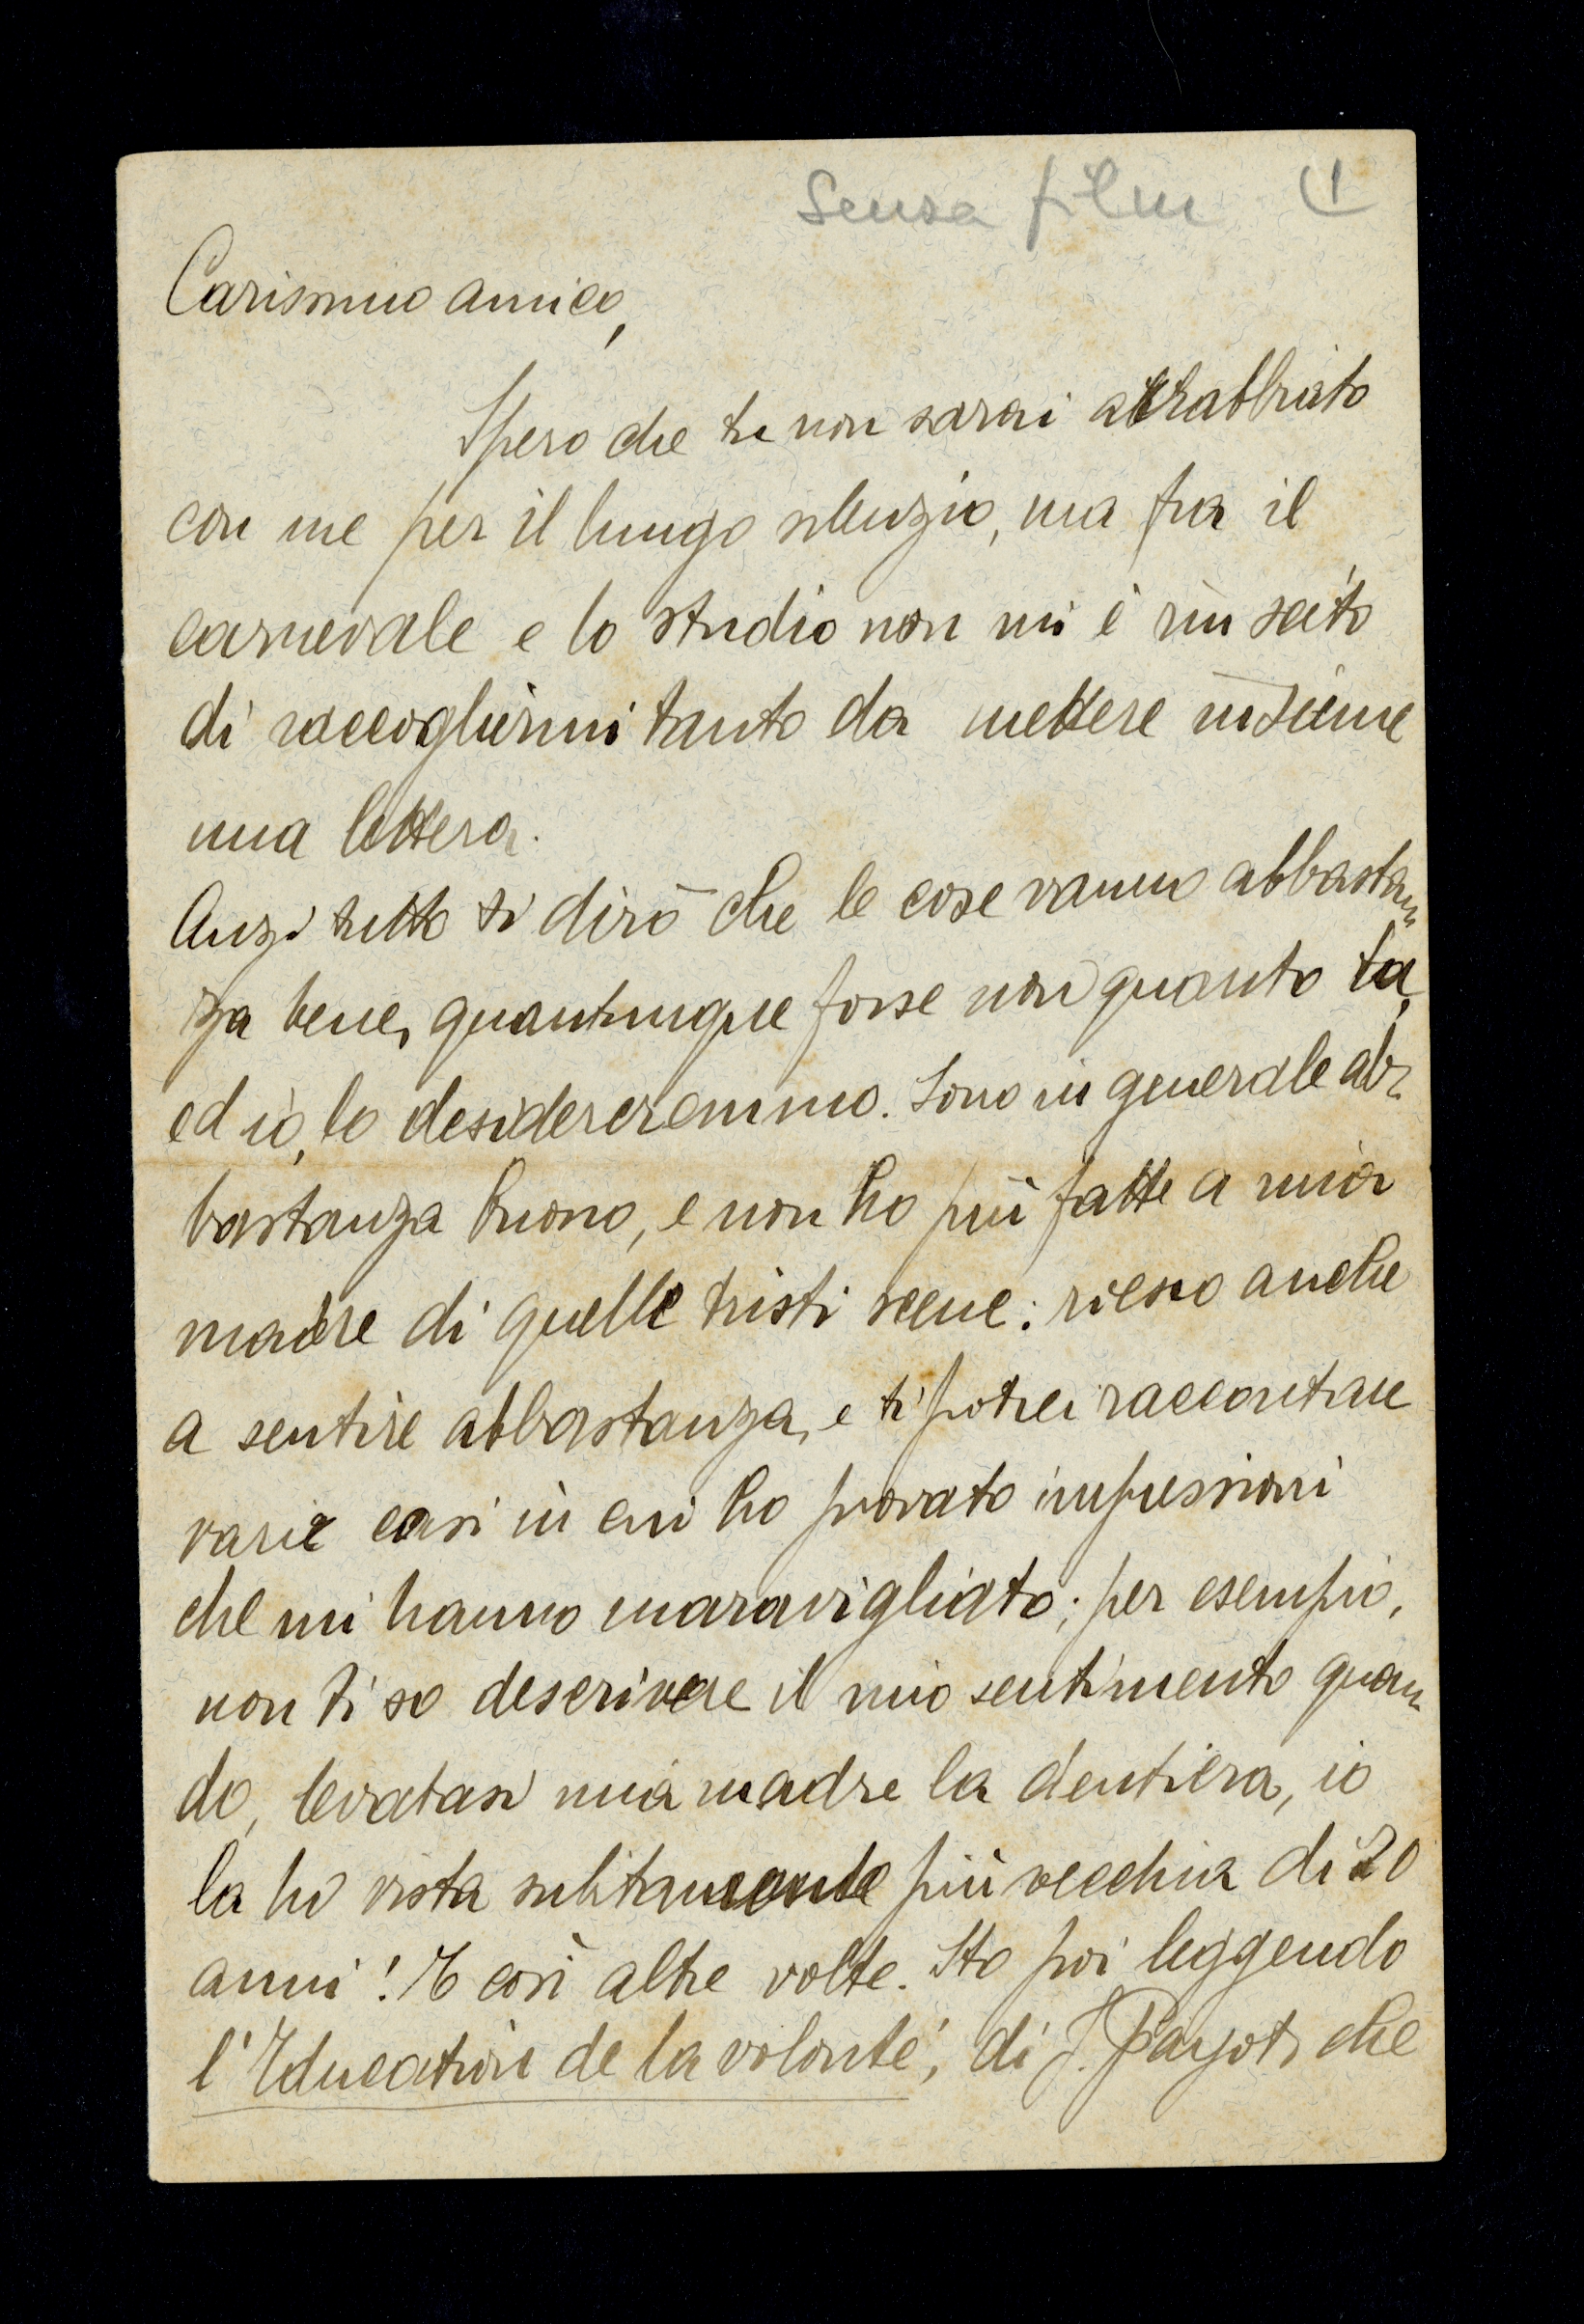 Senza film 1
Carissimo amico,
Spero che tu non sarai arrabbiato
con me per il lungo silenzio, ma fra il
carnevale e lo studio non mi è riuscito
di raccogliermi tanto da mettere insieme
una lettera.
Anzi tutto ti dirò che le cose vanno abbastan-
za bene, quantunque forse non quanto tu,
ed io, lo desidereremmo. Sono in generale ab-
bastanza buono, e non ho più fatte a mia
madre di quelle tristi scene: riesco anche
a sentire abbastanza, e ti potrei raccontare
varie casi in cui ho provato impressioni
che mi hanno maravigliato; per esempio,
non ti so descrivere il mio sentimento quan-
do, levatasi mia madre la dentiera, io
la ho vista subitamente più vecchia di 20
anni! E così altre volte. Sto poi leggendo
l'Education de la volonté, di J. Payot, che